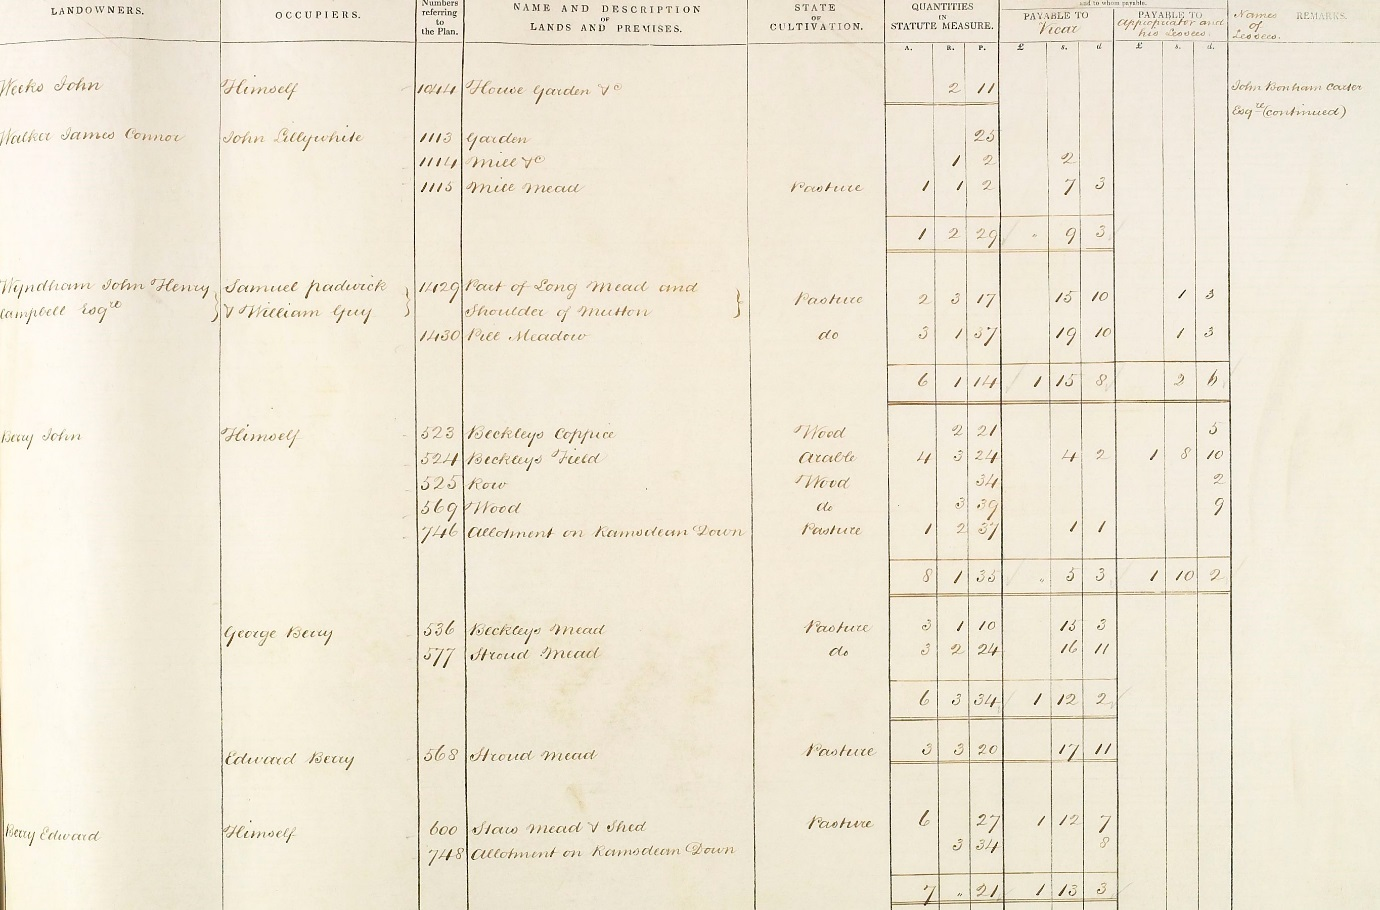 LANDOWNERS. OCCUPIERS. Numbers referring to the Plan. NAME AND DESCRIPTION OF LANDS AND PREMISES. STATE OF CULTIVATION. QUANTITIES IN STATUTE MEASURE. and to whom payable. PAYABLE TO Vicar PAYABLE TO Appropriator and his Lessees. Names of Lessees. REMARKS.
A. R. P. £ s. d £ s. d.
Weeks John Himself 1044 House Garden &c 2 11 John Bonham Carter
Esqre (continued)
Walker James Connor John Lillywhite 1113 Garden 25
1114 Mill &c 1 2 2
1115 Mill Mead Pasture 1 1 2 7 3
1 2 29 " 9 3
Wyndham John Henry Samuel Padwick 1429 Part of Long Mead and
Campbell Esqre & William Guy Shoulder of Mutton Pasture 2 3 17 15 10 1 3
1430 Pill Meadow do 3 1 37 19 10 1 3
6 1 14 1 15 8 2 6
Berry John Himself 523 Beckleys Coppice Wood 2 21 5
524 Beckleys Field Arable 4 3 24 4 2 1 8 10
525 Row Wood 34 2
569 Wood do 3 39 9
746 Allotment on Ramsdean Down Pasture 1 2 37 1 1
8 1 35 " 5 3 1 10 2
George Berry 536 Beckleys Mead Pasture 3 1 10 15 3
577 Stroud Mead do 3 2 24 16 11
6 3 34 1 12 2
Edward Berry 568 Stroud Mead Pasture 3 3 20 17 11
Berry Edward Himself 600 Slaw Mead & Shed Pasture 6 27 1 12 7
748 Allotment on Ramsdean Down 3 34 8
7 " 21 1 13 3